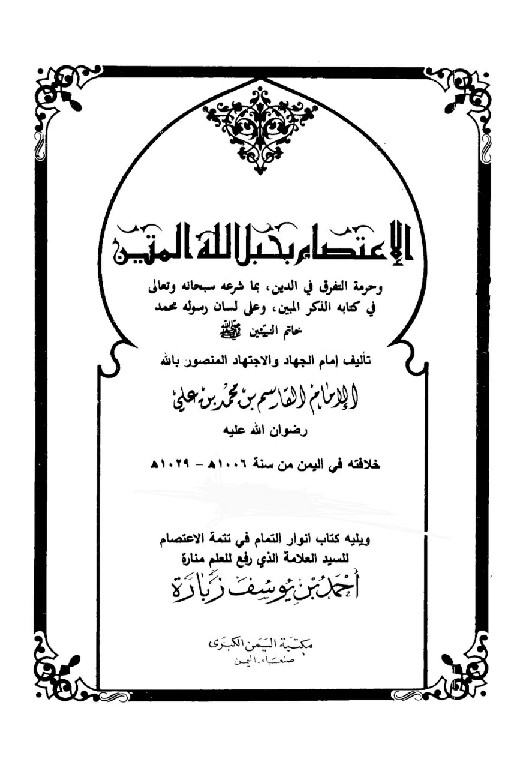 الاعتصام بحبل الله المتين
وحرمة التفرق في الدين، بما شرعه سبحانه وتعالى
في كتابه الذكر المبين، وعلى لسان رسوله محمد
خاتم النبيين ﷺ
تأليف إمام الجهاد والاجتهاد المنصور بالله
الإمام القاسم بن محمد بن علي
رضوان الله عليه
خلافته في اليمن من سنة ١٠٠٦هـ - ١٠٢٩هـ
ويليه كتاب انوار التمام في تتمة الاعتصام
للسيد العلامة الذي رفع للعلم منارة
أحمد بن يوسف زبارة
مكتبة اليمن الكبرى
صنعاء - اليمن